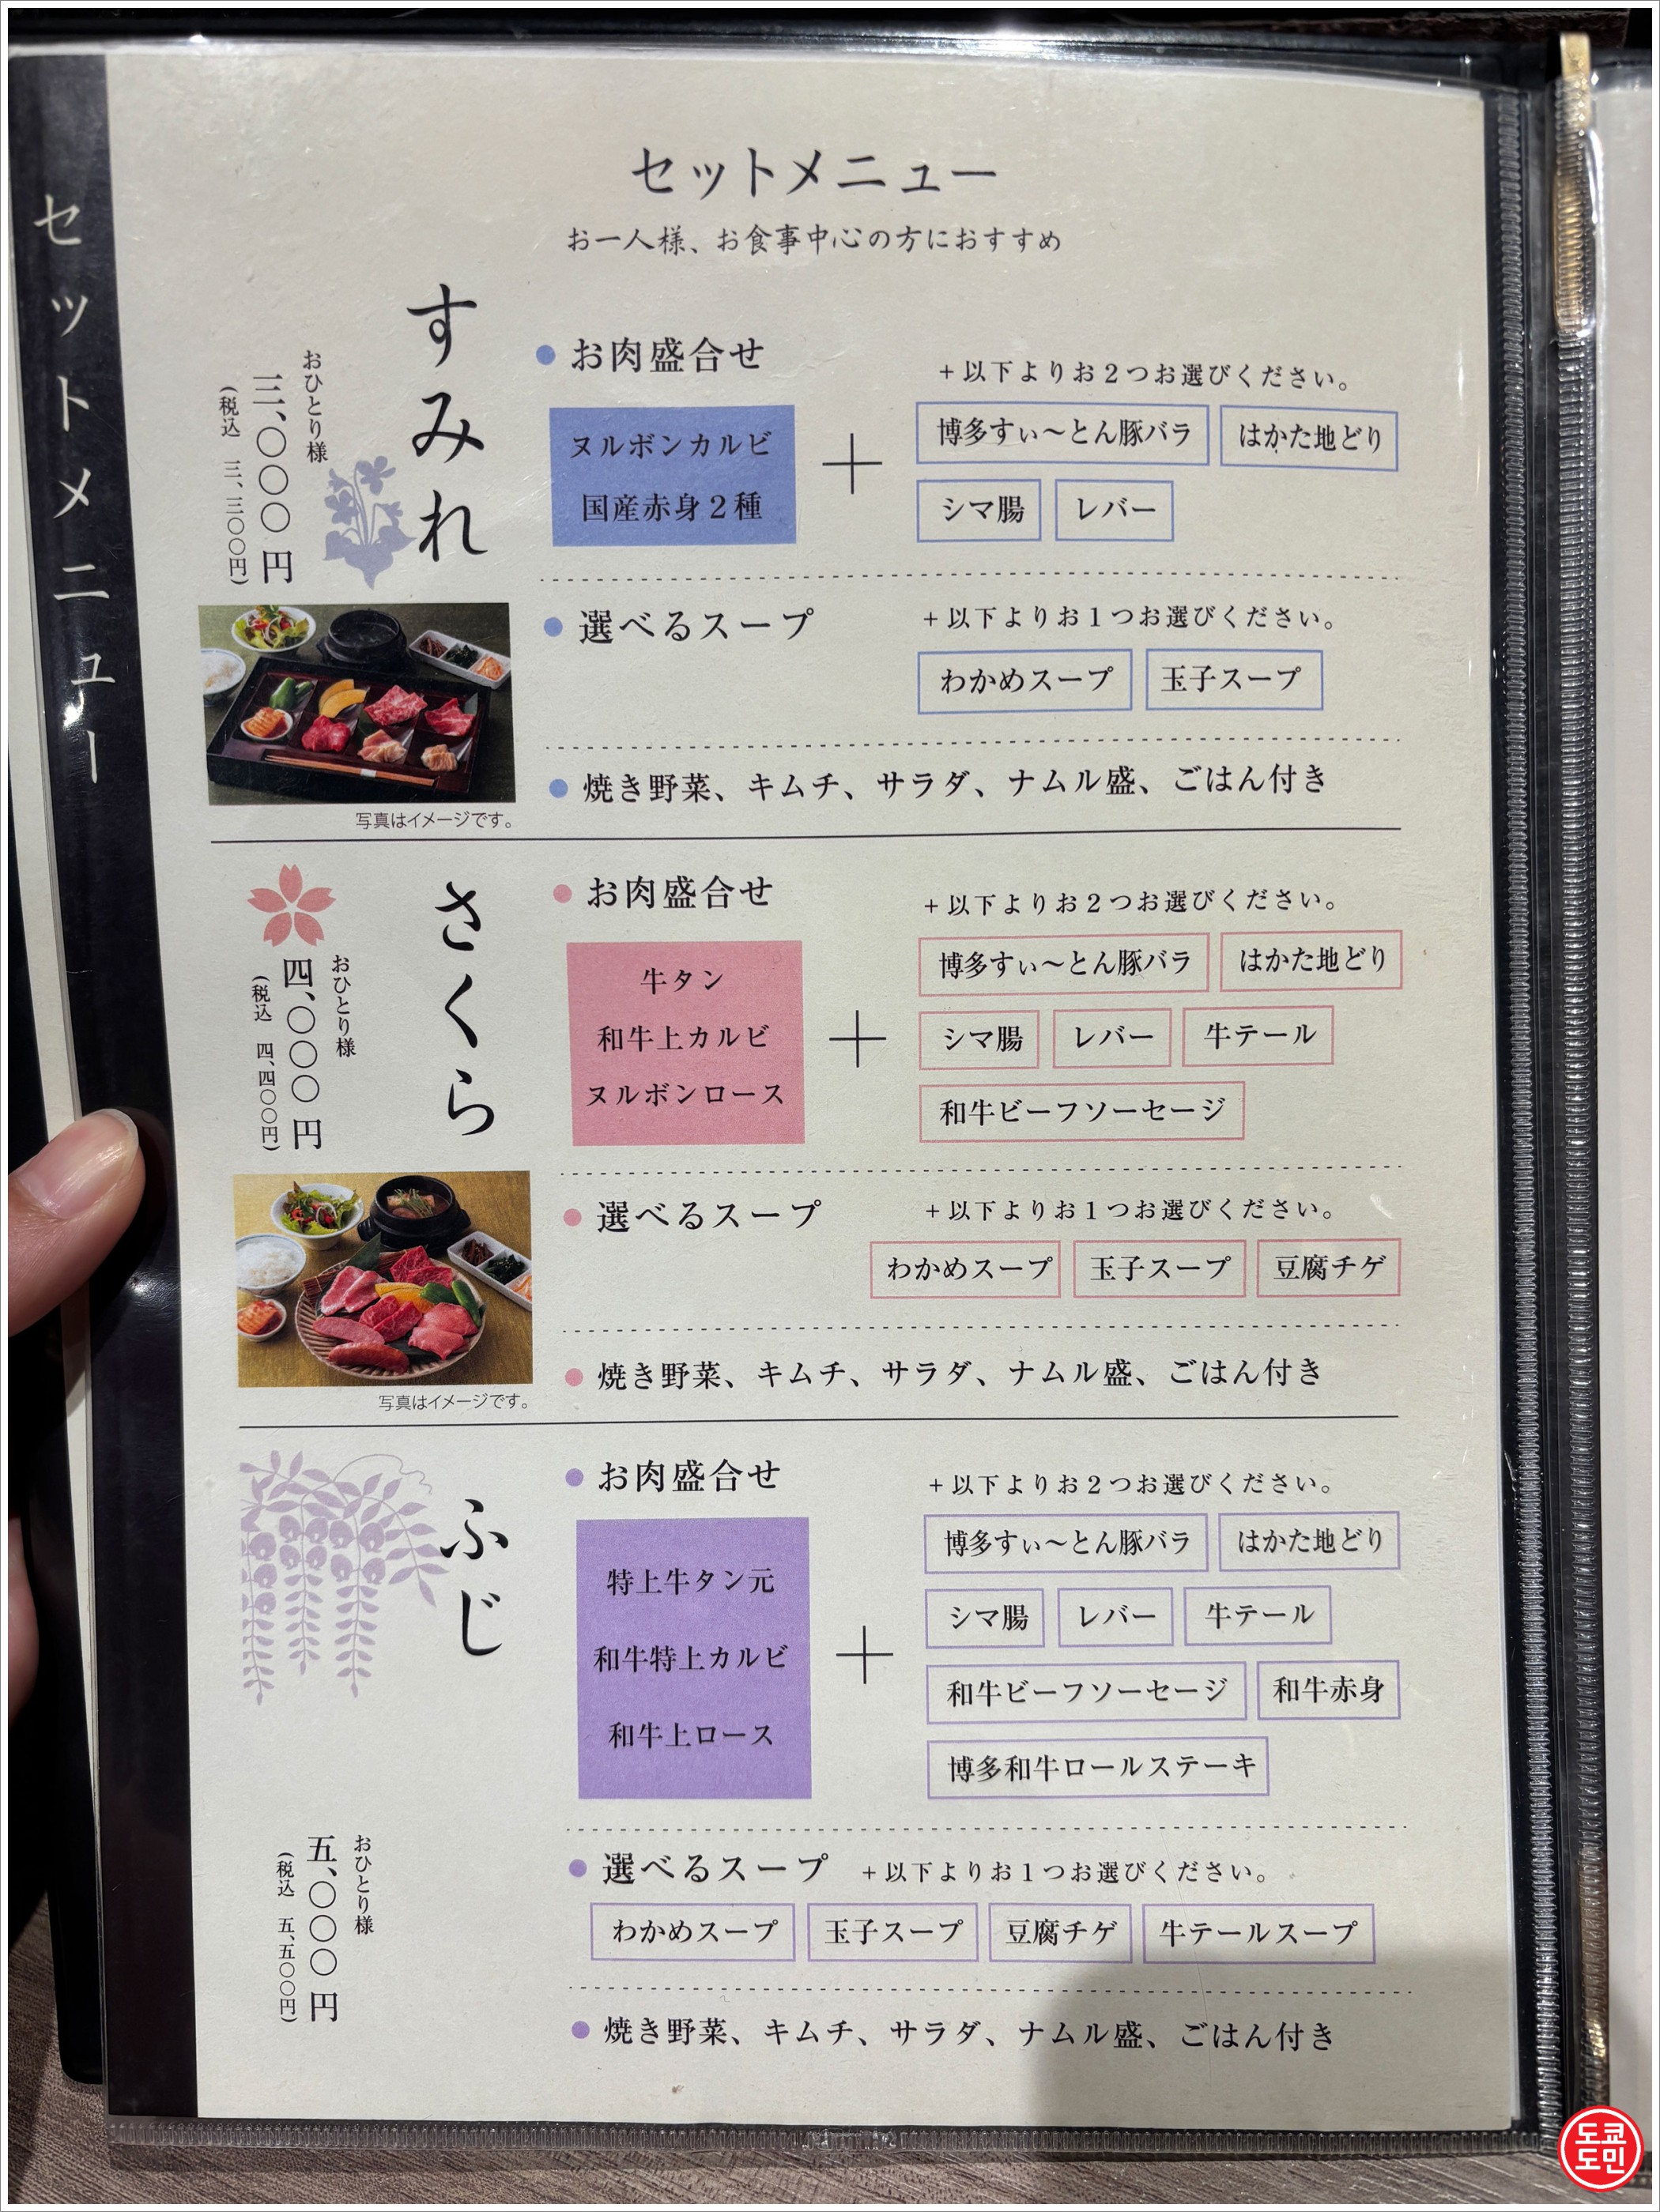 セットメニュー
セットメニュー
お一人様、お食事中心の方におすすめ
すみれ
おひとり様
三、〇〇〇円
(税込 三、三〇〇円)
写真はイメージです。
お肉盛合せ
ヌルボンカルビ
国産赤身2種
+
+以下よりお2つお選びください。
博多すぃ〜とん豚バラ
はかた地どり
シマ腸
レバー
選べるスープ
+以下よりお1つお選びください。
わかめスープ
玉子スープ
焼き野菜、キムチ、サラダ、ナムル盛、ごはん付き
さくら
おひとり様
四、〇〇〇円
(税込 四、四〇〇円)
写真はイメージです。
お肉盛合せ
牛タン
和牛上カルビ
ヌルボンロース
+
+以下よりお2つお選びください。
博多すぃ〜とん豚バラ
はかた地どり
シマ腸
レバー
牛テール
和牛ビーフソーセージ
選べるスープ
+以下よりお1つお選びください。
わかめスープ
玉子スープ
豆腐チゲ
焼き野菜、キムチ、サラダ、ナムル盛、ごはん付き
ふじ
おひとり様
五、〇〇〇円
(税込 五、五〇〇円)
お肉盛合せ
特上牛タン元
和牛特上カルビ
和牛上ロース
+
+以下よりお2つお選びください。
博多すぃ〜とん豚バラ
はかた地どり
シマ腸
レバー
牛テール
和牛ビーフソーセージ
和牛赤身
博多和牛ロールステーキ
選べるスープ
+以下よりお1つお選びください。
わかめスープ
玉子スープ
豆腐チゲ
牛テールスープ
焼き野菜、キムチ、サラダ、ナムル盛、ごはん付き
도쿄
도민